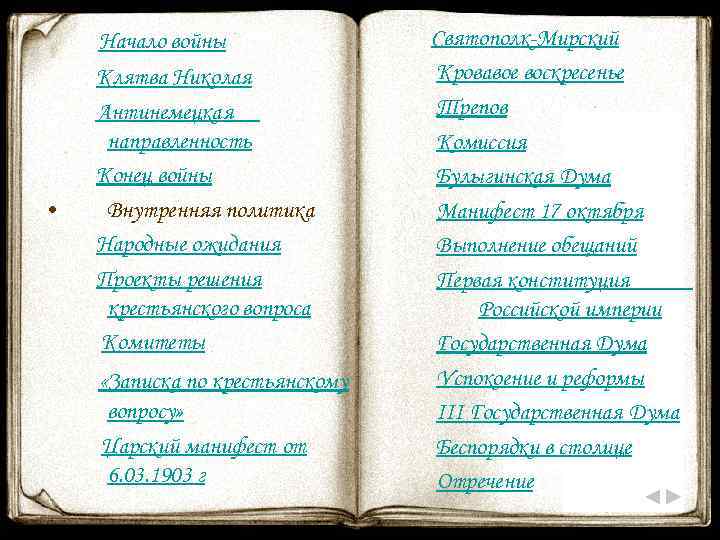 Начало войны
Клятва Николая
Антинемецкая
направленность
Конец войны
• Внутренняя политика
Народные ожидания
Проекты решения
крестьянского вопроса
Комитеты
«Записка по крестьянскому
вопросу»
Царский манифест от
6.03.1903 г
Святополк-Мирский
Кровавое воскресенье
Трепов
Комиссия
Булыгинская Дума
Манифест 17 октября
Выполнение обещаний
Первая конституция
Российской империи
Государственная Дума
Успокоение и реформы
III Государственная Дума
Беспорядки в столице
Отречение